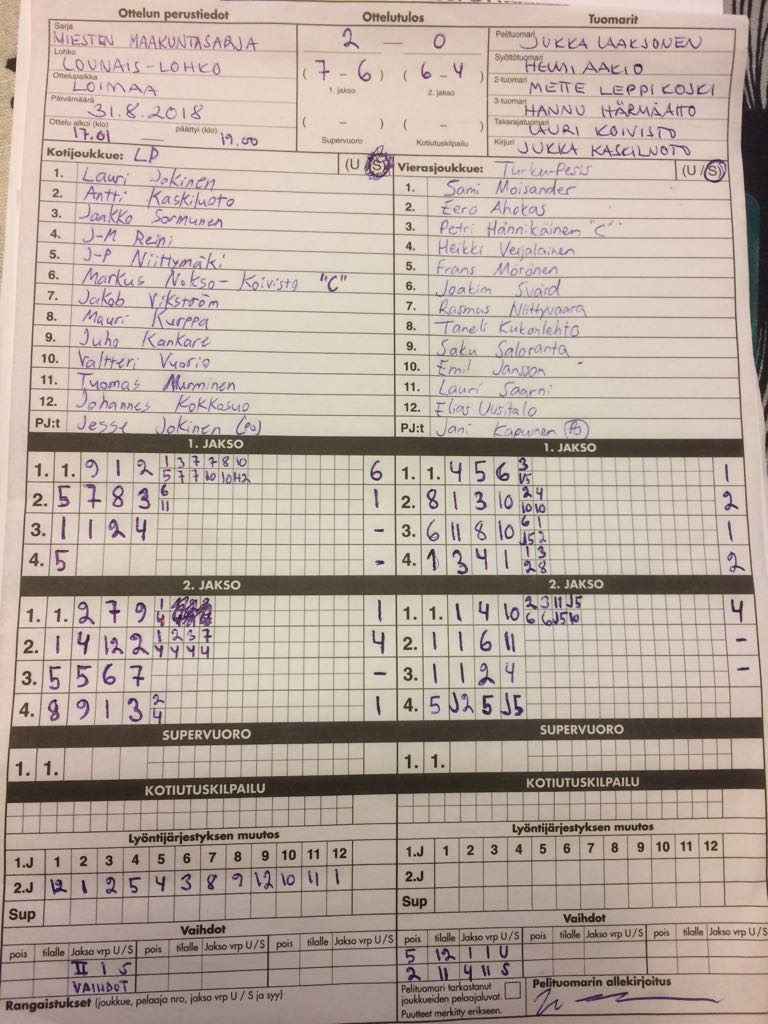 Ottelun perustiedot
Sarja
MIESTEN MAAKUNTASARJA
Lohko
LOUNAIS-LOHKO
Ottelupaikka
LOIMAA
Päivämäärä
31.8.2018
Ottelu alkoi (klo) 17.01 päättyi (klo) 19.00
Ottelutulos
2 — 0
(7 - 6) (6 - 4)
1. jakso 2. jakso
( - ) ( - )
Supervuoro Kotiutuskilpailu
Tuomarit
Pelituomari JUKKA LAAKSONEN
Syöttötuomari HELMI AAKIO
2-tuomari METTE LEPPIKOSKI
3-tuomari HANNU HÄRMÄAITO
Takarajatuomari LAURI KOIVISTO
Kirjuri JUKKA KASKILUOTO
Kotijoukkue: LP (U / S)
1. Lauri Jokinen
2. Antti Kaskiluoto
3. Jaakko Sormunen
4. J-M Reini
5. J-P Niittymäki
6. Markus Nokso-Koivisto "C"
7. Jakob Vikström
8. Mauri Kurppa
9. Juho Kankare
10. Valtteri Vuorio
11. Tuomas Nurminen
12. Johannes Kokkosuo
PJ:t Jesse Jokinen (PO)
Vierasjoukkue: Turku-Pesis (U / S)
1. Sami Moisander
2. Eero Ahokas
3. Petri Hännikäinen "C"
4. Heikki Verjalainen
5. Frans Mörönen
6. Joakim Svärd
7. Rasmus Niittyvaara
8. Taneli Kukonlehto
9. Saku Saloranta
10. Emil Jansson
11. Lauri Saarni
12. Elias Uusitalo
PJ:t Jani
1. JAKSO
1. 1. 9 1 2 1 3 7 7 8 10 6
5 7 7 10 10
2. 5 7 8 3 6 1
11
3. 1 1 2 4 -
4. 5 -
1. JAKSO
1. 1. 4 5 6 3 1
J5
2. 8 1 3 10 2 4 2
10 10
3. 6 11 8 10 6 1 1
J5 2
4. 1 3 4 1 1 3 2
2 8
2. JAKSO
1. 1. 2 7 9 1 1
4
2. 1 4 12 2 1 2 3 7 4
4 4 4 4
3. 5 5 6 7 -
4. 8 9 1 3 2 1
4
2. JAKSO
1. 1. 1 4 10 2 3 11 J5 4
6 6 J5 10
2. 1 1 6 11 -
3. 1 1 2 4 -
4. 5 J2 5 J5
SUPERVUORO
1. 1.
SUPERVUORO
1. 1.
KOTIUTUSKILPAILU
KOTIUTUSKILPAILU
Lyöntijärjestyksen muutos
1.J 1 2 3 4 5 6 7 8 9 10 11 12
2.J 12 1 2 5 4 3 8 9 12 10 11 1
Sup
Lyöntijärjestyksen muutos
1.J 1 2 3 4 5 6 7 8 9 10 11 12
2.J
Sup
Vaihdot
pois tilalle Jakso vrp U / S pois tilalle Jakso vrp U / S pois tilalle Jakso vrp U / S
II 1 S
VAIHDOT
Rangaistukset (joukkue, pelaaja nro, jakso vrp U / S ja syy)
Vaihdot
pois tilalle Jakso vrp U / S pois tilalle Jakso vrp U / S pois tilalle Jakso vrp U / S
5 12 1 1 U
2 11 4 11 S
Pelituomari tarkastanut
joukkueiden pelaajaluvat.
Puutteet merkitty erikseen.
Pelituomarin allekirjoitus